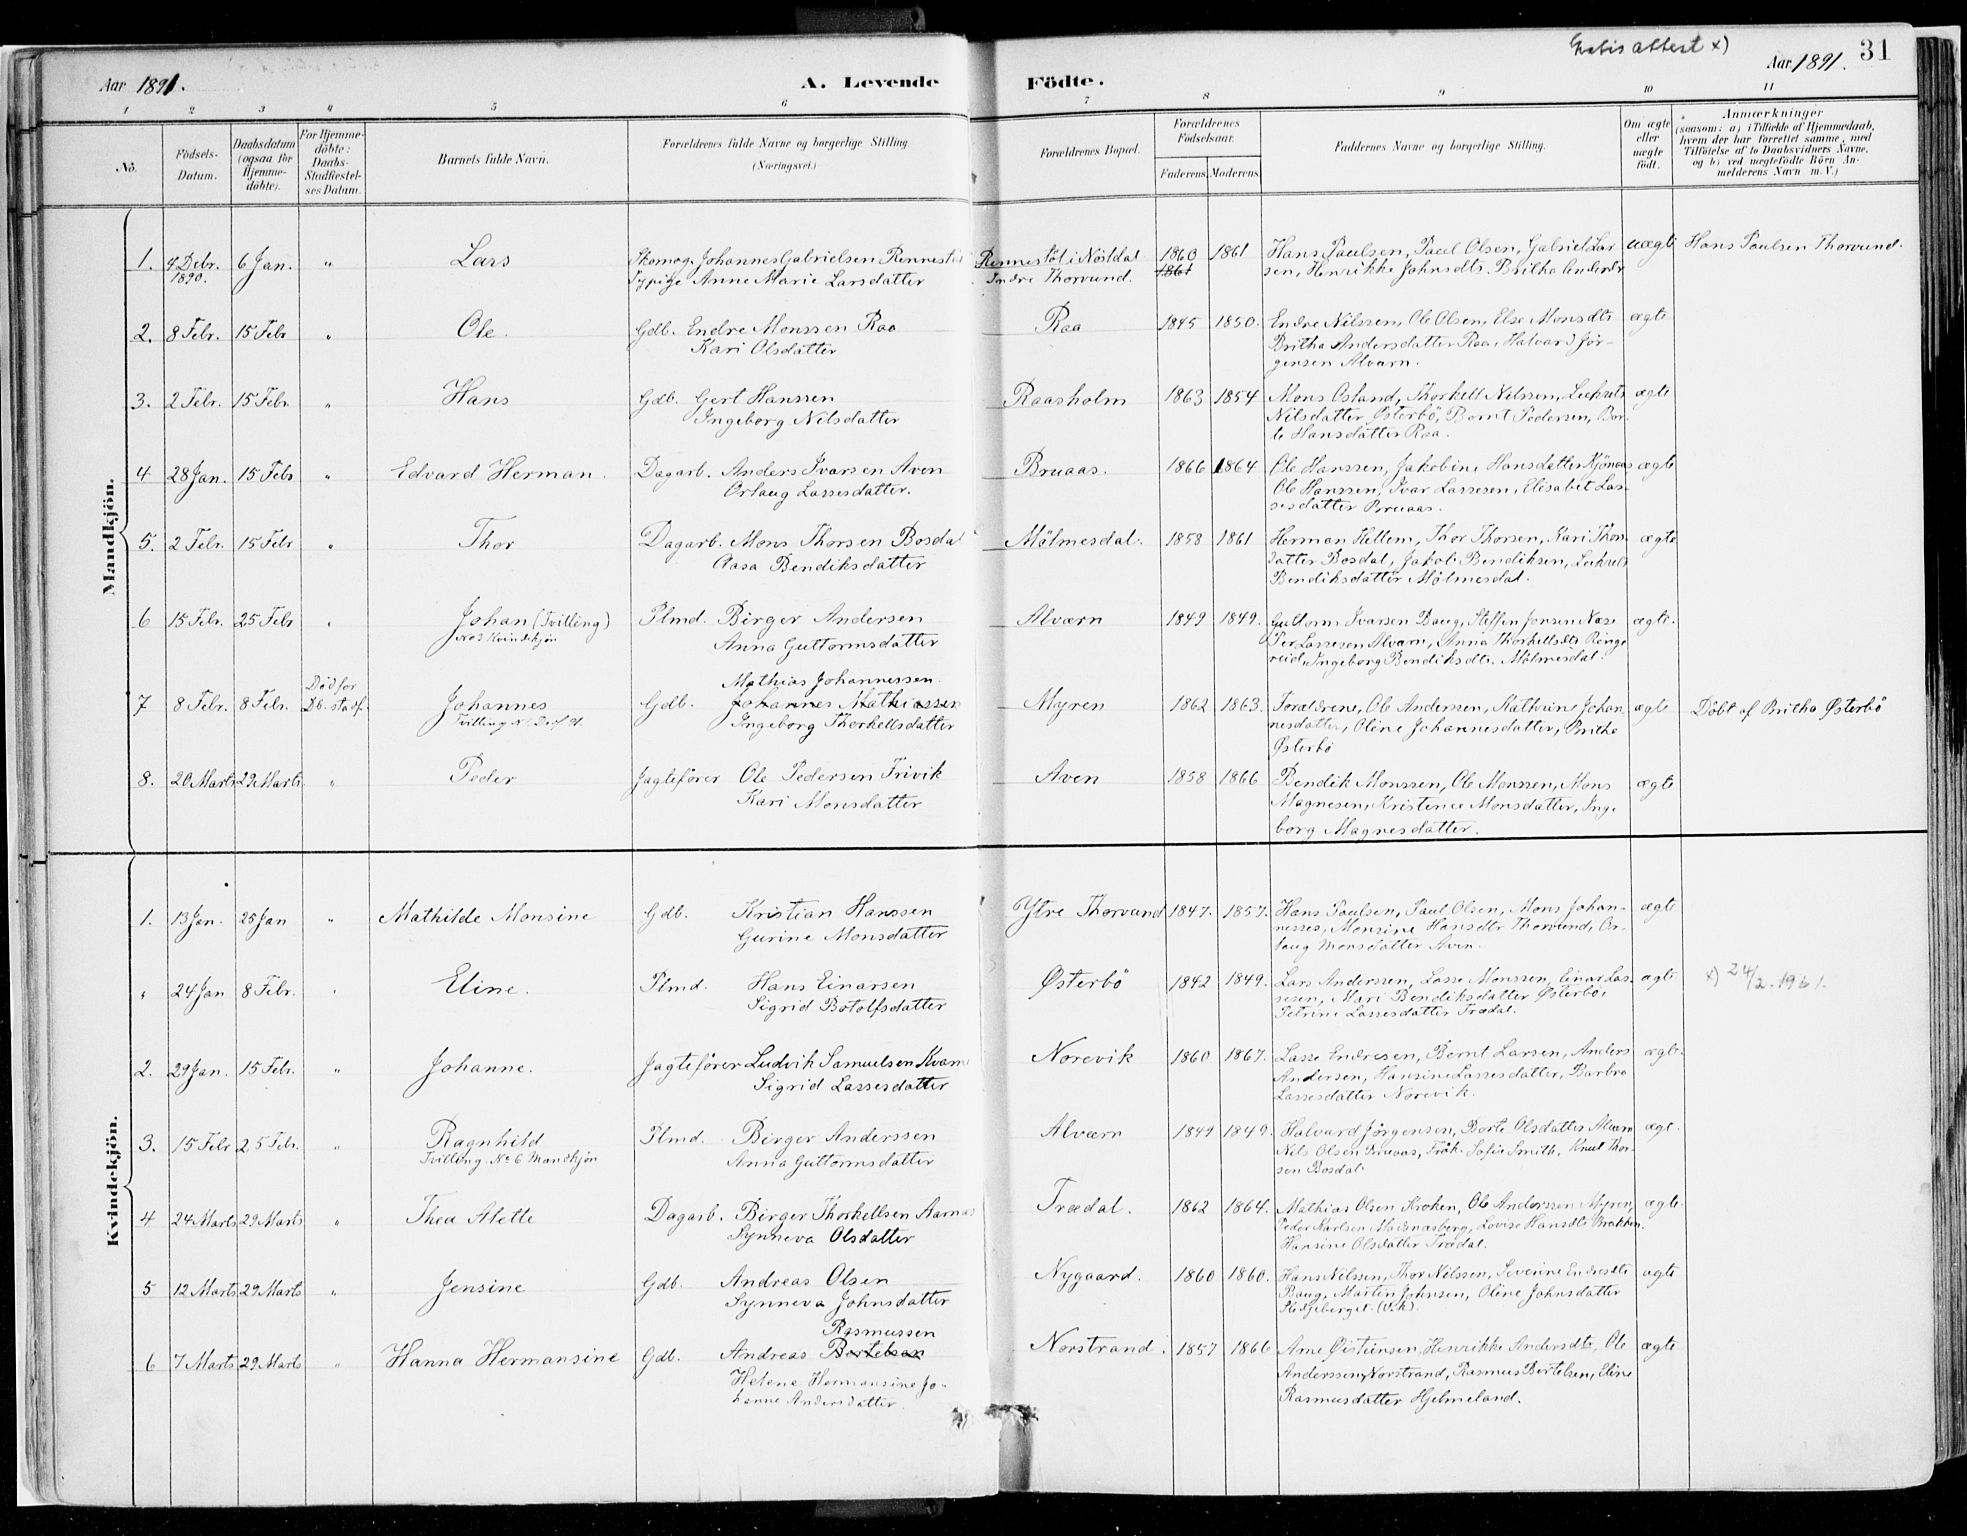 Gratis attest x)
31
Aar 1891.
A. Levende Födte.
Aar 1891.
1 2 3 4 5 6 7 8 9 10 11
No.
Födsels-
Datum.
Daabsdatum
(ogsaa for
Hjemme-
döbte).
For Hjemme-
döbte:
Daabs-
Stadfæstel-
ses Datum.
Barnets fulde Navn.
Forældrenes fulde Navne og borgerlige Stilling
(Næringsvei.)
Forældrenes Bopæl.
Forældrenes
Födselsaar.
Faderens. Moderens.
Faddernes Navne og borgerlige Stilling.
Om ægte
eller
uægte
födt.
Anmærkninger
(saasom: a) i Tilfælde af Hjemmedaab,
hvem der har forrettet samme, med
Tilföielse af to Daabsvidners Navne,
og b) ved uægtefödte Börn An-
melderens Navn m.V.)
Mandkjön.
1. 4 Debr. 1890. 6 Jan. " Lars
Skomag. Johannes Gabrielsen Rennestöl
Tj.pige Anne Marie Larsdatter
Rennestöl i Nöstdal
Indre Thorvund.
1860 1861
1861
Hans Paulsen, Paul Olsen, Gabriel Lar
sen, Henrikke Johnsdtr. Britha Endredr
uægte
Hans Paulsen Thorvund.
2. 8 Febr. 15 Febr " Ole.
Gdb. Endre Monssen Raa
Kari Olsdatter
Raa 1845 1850.
Endre Nilssen, Ole Olsen, Else Monsdtr
Britha Andersdatter Raa, Halvard Jör-
gensen Alværn.
ægte
3. 2 Febr. 15 Febr. " Hans
Gdb. Gert Hanssen
Ingeborg Nilsdatter
Raasholm 1863 1854
Mons Osland, Thorkell Nilssen,
Nilsdatter Østerbö, Bernt Pedersen, Bor-
te Hansdatter Raa.
ægte
4 28 Jan. 15 Febr " Edvard Herman.
Dagarb. Anders Ivarsen Aven
Orlaug Lassesdatter.
Bruaas. 1866 1864
Ole Hanssen, Jakobine Hansdatter Kjönaas
Ole Hanssen, Ivar Lassesen, Elisabet Las-
sesdatter Bruaas.
ægte
5. 2 Febr. 15 Febr " Thor
Dagarb. Mons Thorsen Bosdal
Aasa Bendiksdatter
Mölmesdal. 1858 1861
Herman Hellem, Thor Thorsen, Kari Thors-
datter Bosdal, Jakob Bendiksen,
Bendiksdatter Mölmesdal.
ægte
6 15 Febr. 25 Febr " Johan (Tvilling)
No 3 Kvindekjön
Plmd. Birger Andersen
Anna Guttormsdatter
Alværn 1849 1849.
Guttorm Ivarsen Baug, Steffen Jonsen Næse
Per Lassesen Alværn, Anna Thorkellsdtr Ringe
reid, Ingeborg Bendiksdtr. Mölmesdal.
ægte.
7 8 Febr. 8 Febr. Död för
Db. stadf. Johannes
Tvilling N.
Gdb. Mathias Johannessen.
Johannes Mathiassen
Ingeborg Thorkellsdatter
Myren 1862 1863.
Forældrene, Ole Andersen, Kathrine Johan
nesdatter, Oline Johannesdatter, Britha
Østerbö
ægte
Döbt af Britha Østerbö
8. 20 Marts 29 Marts " Peder
Jagtefører Ole Pedersen Trivik
Kari Monsdatter
Aven 1858 1866
Bendik Monssen, Ole Monssen, Mons
Magnesen, Kristence Monsdatter, Inge
borg Magnesdatter.
ægte
Kvindekjön.
1. 13 Jan. 25 Jan " Mathilde Monsine
Gdb. Kristian Hanssen
Gurine Monsdatter
Ytre Thorvund 1847. 1857.
Hans Paulsen, Paul Olsen, Mons Johan-
nesses, Monsine Hansdtr Thorvund, Or-
laug Monsdatter Aven.
ægte
" 24 Jan 8 Febr. " Eline.
Plmd. Hans Einarsen
Sigrid Botolfsdatter
Østerbö 1842 1849.
Lars Anderssen, Lasse Monssen, Einar Las-
sesen, Mari Bendiksdatter Østerbö,
Petrine Lassesdatter Trædal.
ægte
x) 24/2. 1961.
2. 29 Jan. 15 Febr. " Johanne.
Jagtefører Ludvik Samuelsen Kvam
Sigrid Lassesdatter
Norevik 1860 1867.
Lasse Endresen, Bernt Larsen, Anders
Andersen, Hansine Lassesdatter, Barbra
Lassesdatter Norevik.
ægte.
3. 15 Febr 25 Febr. " Ragnhild
Tvilling. No 6 Mandkjön
Plmd. Birger Anderssen
Anna Guttormsdatter
Alværn 1849 1849.
Halvard Jörgensen, Borte Olsdatter Alværn
Nils Olsen Bruaas, Frök. Sofie Smith, Knut Thor-
sen Bosdal.
ægt.
4 24 Marts 29 Marts " Thea Alette
Dagarb. Birger Thorkellsen Aarnes
Synneva Olsdatter
Trædal. 1862 1864.
Mathias Olsen Kroken, Ole Anderssen Myren,
Peder Karlsen Madsnæsberg, Lovise Hansdtr Brækken.
Hansine Olsdatter Trædal.
ægte.
5 12 Marts 29 Marts " Jensine
Gdb. Andreas Olsen
Synneva Johnsdatter
Nygaard. 1860 1860.
Hans Nilssen, Thor Nilssen, Severine Endresdtr
Baug, Martin Johnsen, Oline Johnsdatter
(Vik).
ægte
6 7 Marts 29 Marts " Hanna Hermansine
Gdb. Andreas Rasmussen
Bertelsen
Helene Hermansine Jo-
hanne Andersdatter.
Norstrand. 1857 1866
Arne Øistensen, Henrikke Andersdtr, Ole
Anderssen, Norstrand, Rasmus Bertelsen, Eline
Rasmusdatter Hjelmeland.
ægte